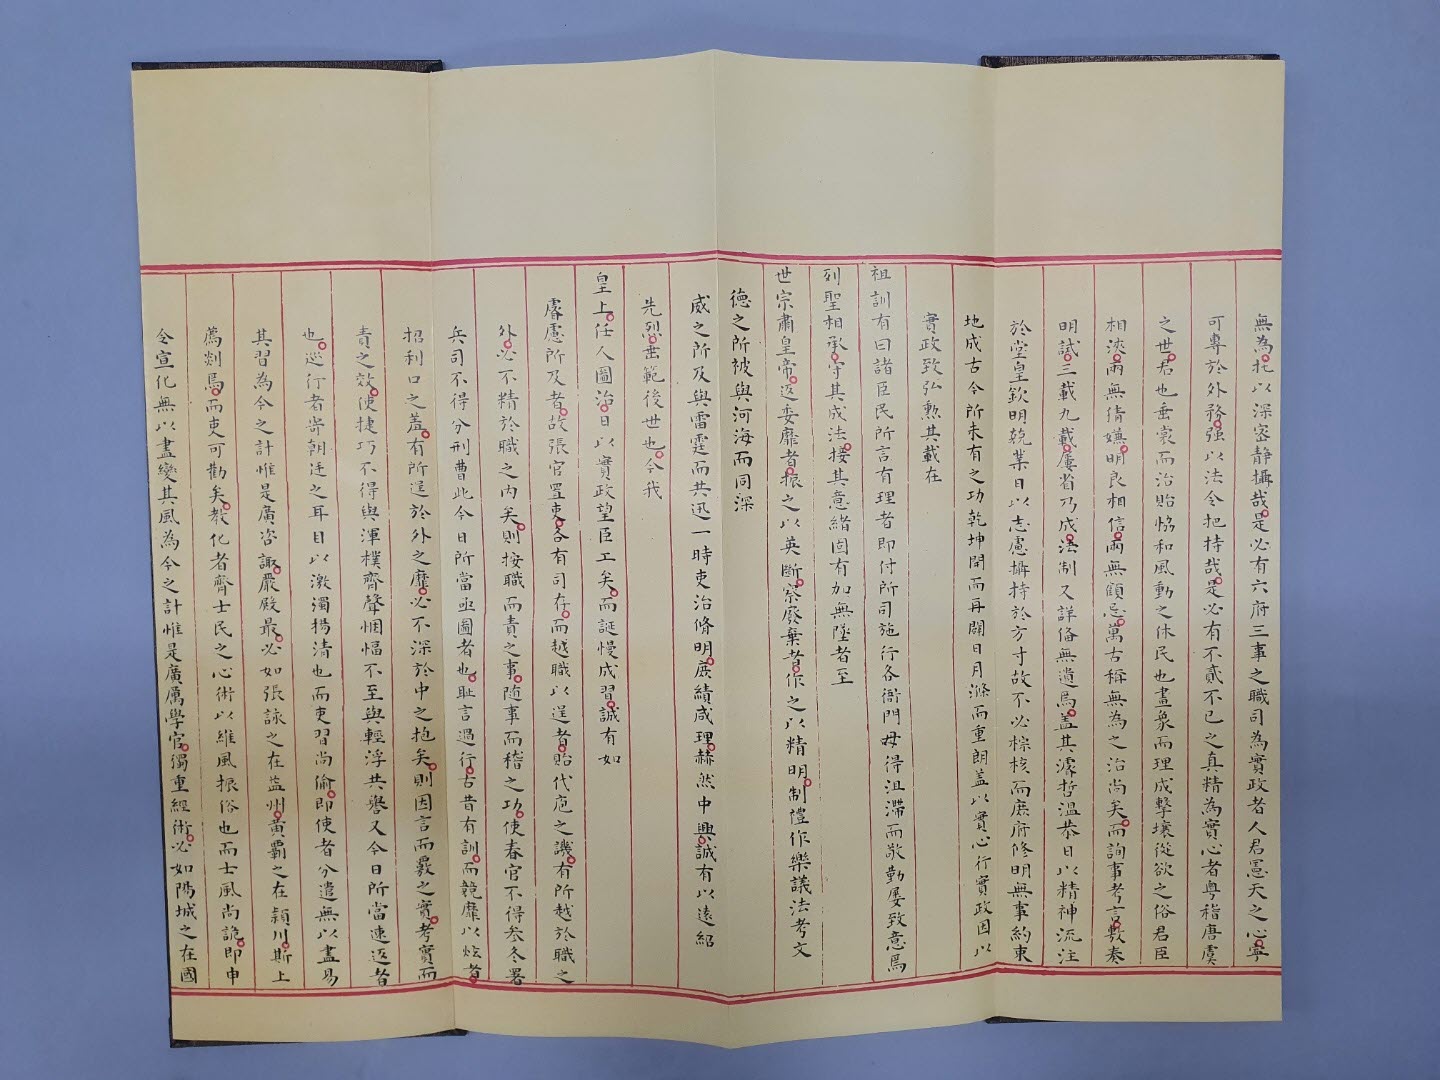 無為托以深宻静攝哉是必有六府三事之職司為實政者人君憲天之心寧
可專於外務强以法令把持哉是必有不貳不已之真精為實心者粤稽唐虞
之世君也垂裳而治貽恊和風動之休民也畫象而理成擊壤從欲之俗君臣
相浹兩無猜嫌明良相信兩無顧忌萬古稱無為之治尚矣而詢事考言敷奏
明試三載九載屢省乃成法制又詳俻無遺焉盖其濬哲温恭日以精神流注
於堂皇欽明兢業日以志慮攝持於方寸故不必綜核而庶府修明無事約束
地成古今所未有之功乾坤開而再闢日月滌而重朗盖以實心行實政因以
實政致弘勲其載在
祖訓有曰諸臣民所言有理者即付所司施行各衙門毋得沮滯而敬勤屡致意焉
列聖相承守其成法接其意緒固有加無墜者至
世宗肅皇帝返委靡者振之以英断察廢棄者作之以精明制禮作樂議法考文
德之所被與河海而同深
威之所及與雷霆而共迅一時吏治脩明庶績咸理赫然中興誠有以遠紹
先烈垂範後世也今我
皇上任人圖治日以實政望臣工矣而誕慢成習誠有如
睿慮所及者故張官置吏各有司存而越職以逞者貽代庖之譏有所越於職之
外必不精於職之内矣則按職而責之事随事而稽之功使春官不得参冬署
兵司不得分刑曹此今日所當亟圖者也耻言過行古昔有訓而競靡以炫者
招利口之羞有所逞於外之靡必不深於中之抱矣則因言而覈之實考實而
責之效使捷巧不得與渾樸齊聲悃愊不至與輕浮共譽又今日所當速返者
也巡行者寄朝廷之耳目以激濁揚清也而吏習尚偷即使者分遣無以盡易
其習為今之計惟是廣咨諏嚴殿最必如張詠之在益州黄覇之在頴川斯上
薦剡焉而吏可勸矣教化者齊士民之心術以維風振俗也而士風尚詭即申
令宣化無以盡變其風為今之計惟是廣厲學官獨重經術必如陽城之在國